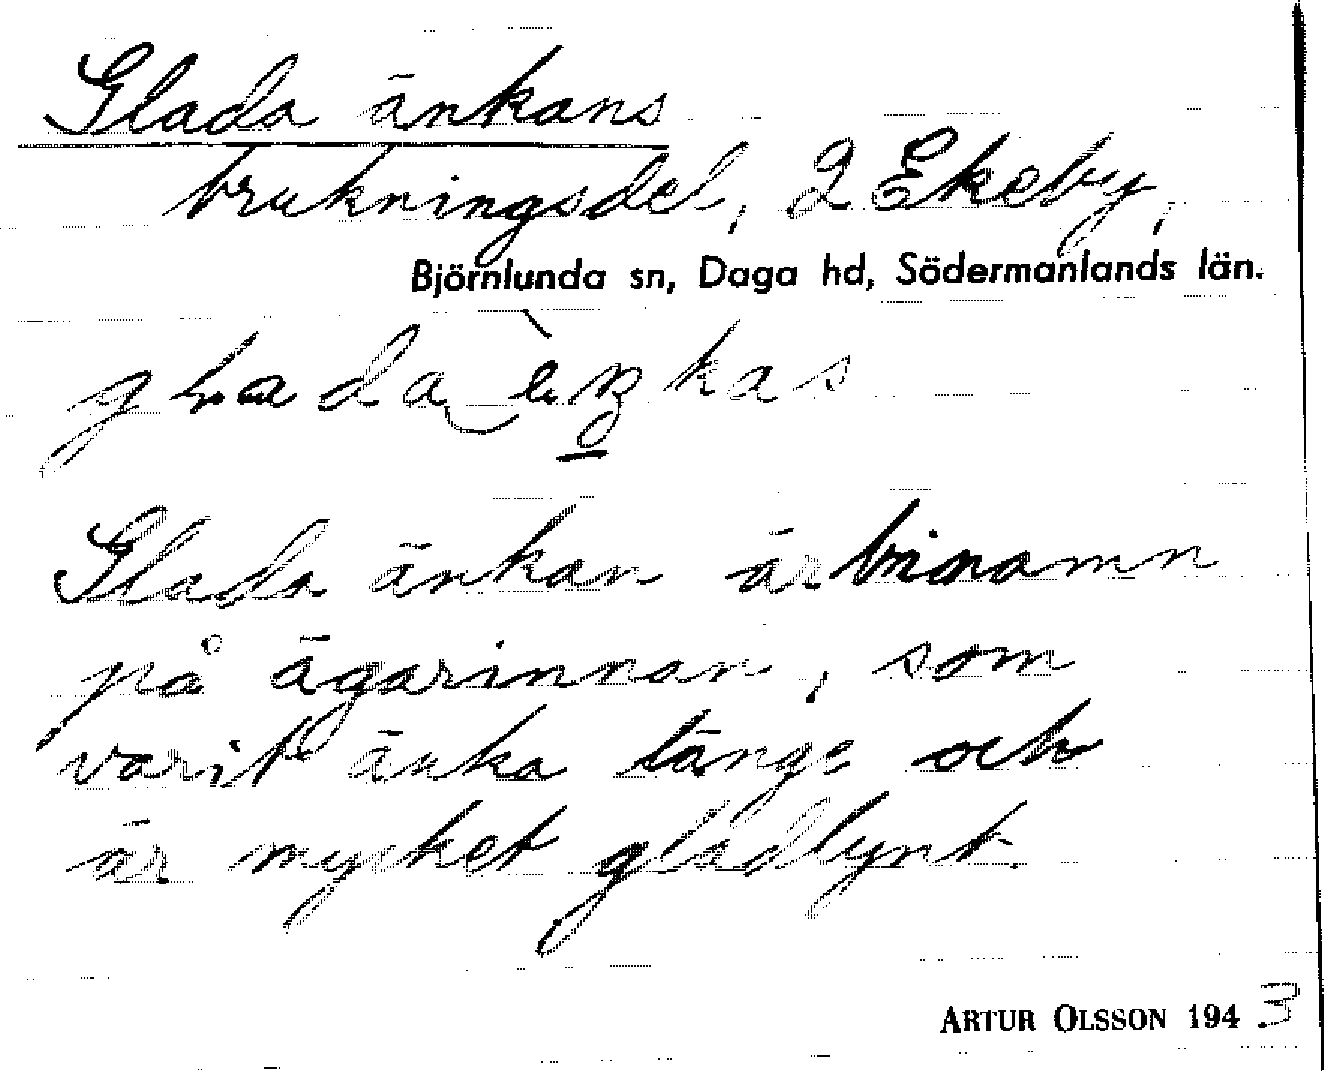 Glada änkans
brukningsdel, 2 Ekeby,
Björnlunda sn, Daga hd, Södermanlands län.
Glada änkan är binamn
på ägarinnan, som
varit änka länge och
är mycket gladlynt.
ARTUR OLSSON 1943